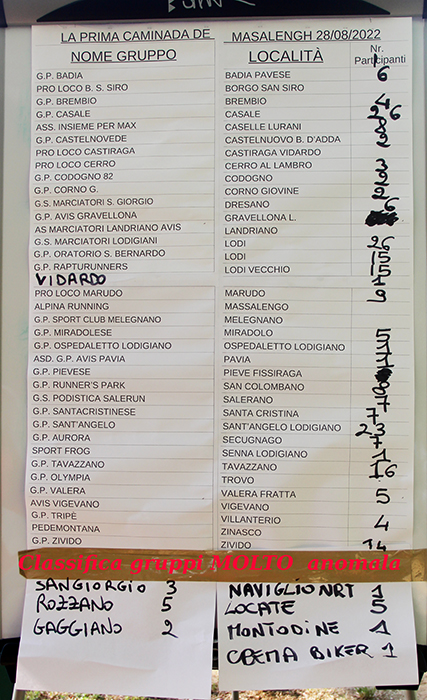 LA PRIMA CAMINADA DE MASALENGH 28/08/2022
NOME GRUPPO LOCALITÀ Nr. Partecipanti
G.P. BADIA BADIA PAVESE 6
PRO LOCO B. S. SIRO BORGO SAN SIRO
G.P. BREMBIO BREMBIO 4
G.P. CASALE CASALE 26
ASS. INSIEME PER MAX CASELLE LURANI
G.P. CASTELNOVEDE CASTELNUOVO B. D'ADDA 2
PRO LOCO CASTIRAGA CASTIRAGA VIDARDO
PRO LOCO CERRO CERRO AL LAMBRO 3
G.P. CODOGNO 82 CODOGNO 2
G.P. CORNO G. CORNO GIOVINE 2
G.S. MARCIATORI S. GIORGIO DRESANO 6
G.P. AVIS GRAVELLONA GRAVELLONA L.
AS MARCIATORI LANDRIANO AVIS LANDRIANO
G.S. MARCIATORI LODIGIANI LODI 26
G.P. ORATORIO S. BERNARDO LODI 15
G.P. RAPTURUNNERS LODI VECCHIO 15
VIDARDO 1
PRO LOCO MARUDO MARUDO 9
ALPINA RUNNING MASSALENGO
G.P. SPORT CLUB MELEGNANO MELEGNANO
G.P. MIRADOLESE MIRADOLO 5
G.P. OSPEDALETTO LODIGIANO OSPEDALETTO LODIGIANO 1
ASD. G.P. AVIS PAVIA PAVIA 1
G.P. PIEVESE PIEVE FISSIRAGA
G.P. RUNNER'S PARK SAN COLOMBANO
G.S. PODISTICA SALERUN SALERANO 7
G.P. SANTACRISTINESE SANTA CRISTINA 7
G.P. SANT'ANGELO SANT'ANGELO LODIGIANO 23
G.P. AURORA SECUGNAGO 7
SPORT FROG SENNA LODIGIANO 1
G.P. TAVAZZANO TAVAZZANO 16
G.P. OLYMPIA TROVO
G.P. VALERA VALERA FRATTA 5
AVIS VIGEVANO VIGEVANO
G.P. TRIPÈ VILLANTERIO 4
PEDEMONTANA ZINASCO
G.P. ZIVIDO ZIVIDO 14
Classifica gruppi MOLTO anomala
SANGIORGIO 3 NAVIGLIO NRT 1
ROZZANO 5 LOCATE 5
GAGGIANO 2 MONTODINE 1
CREMA BIKER 1